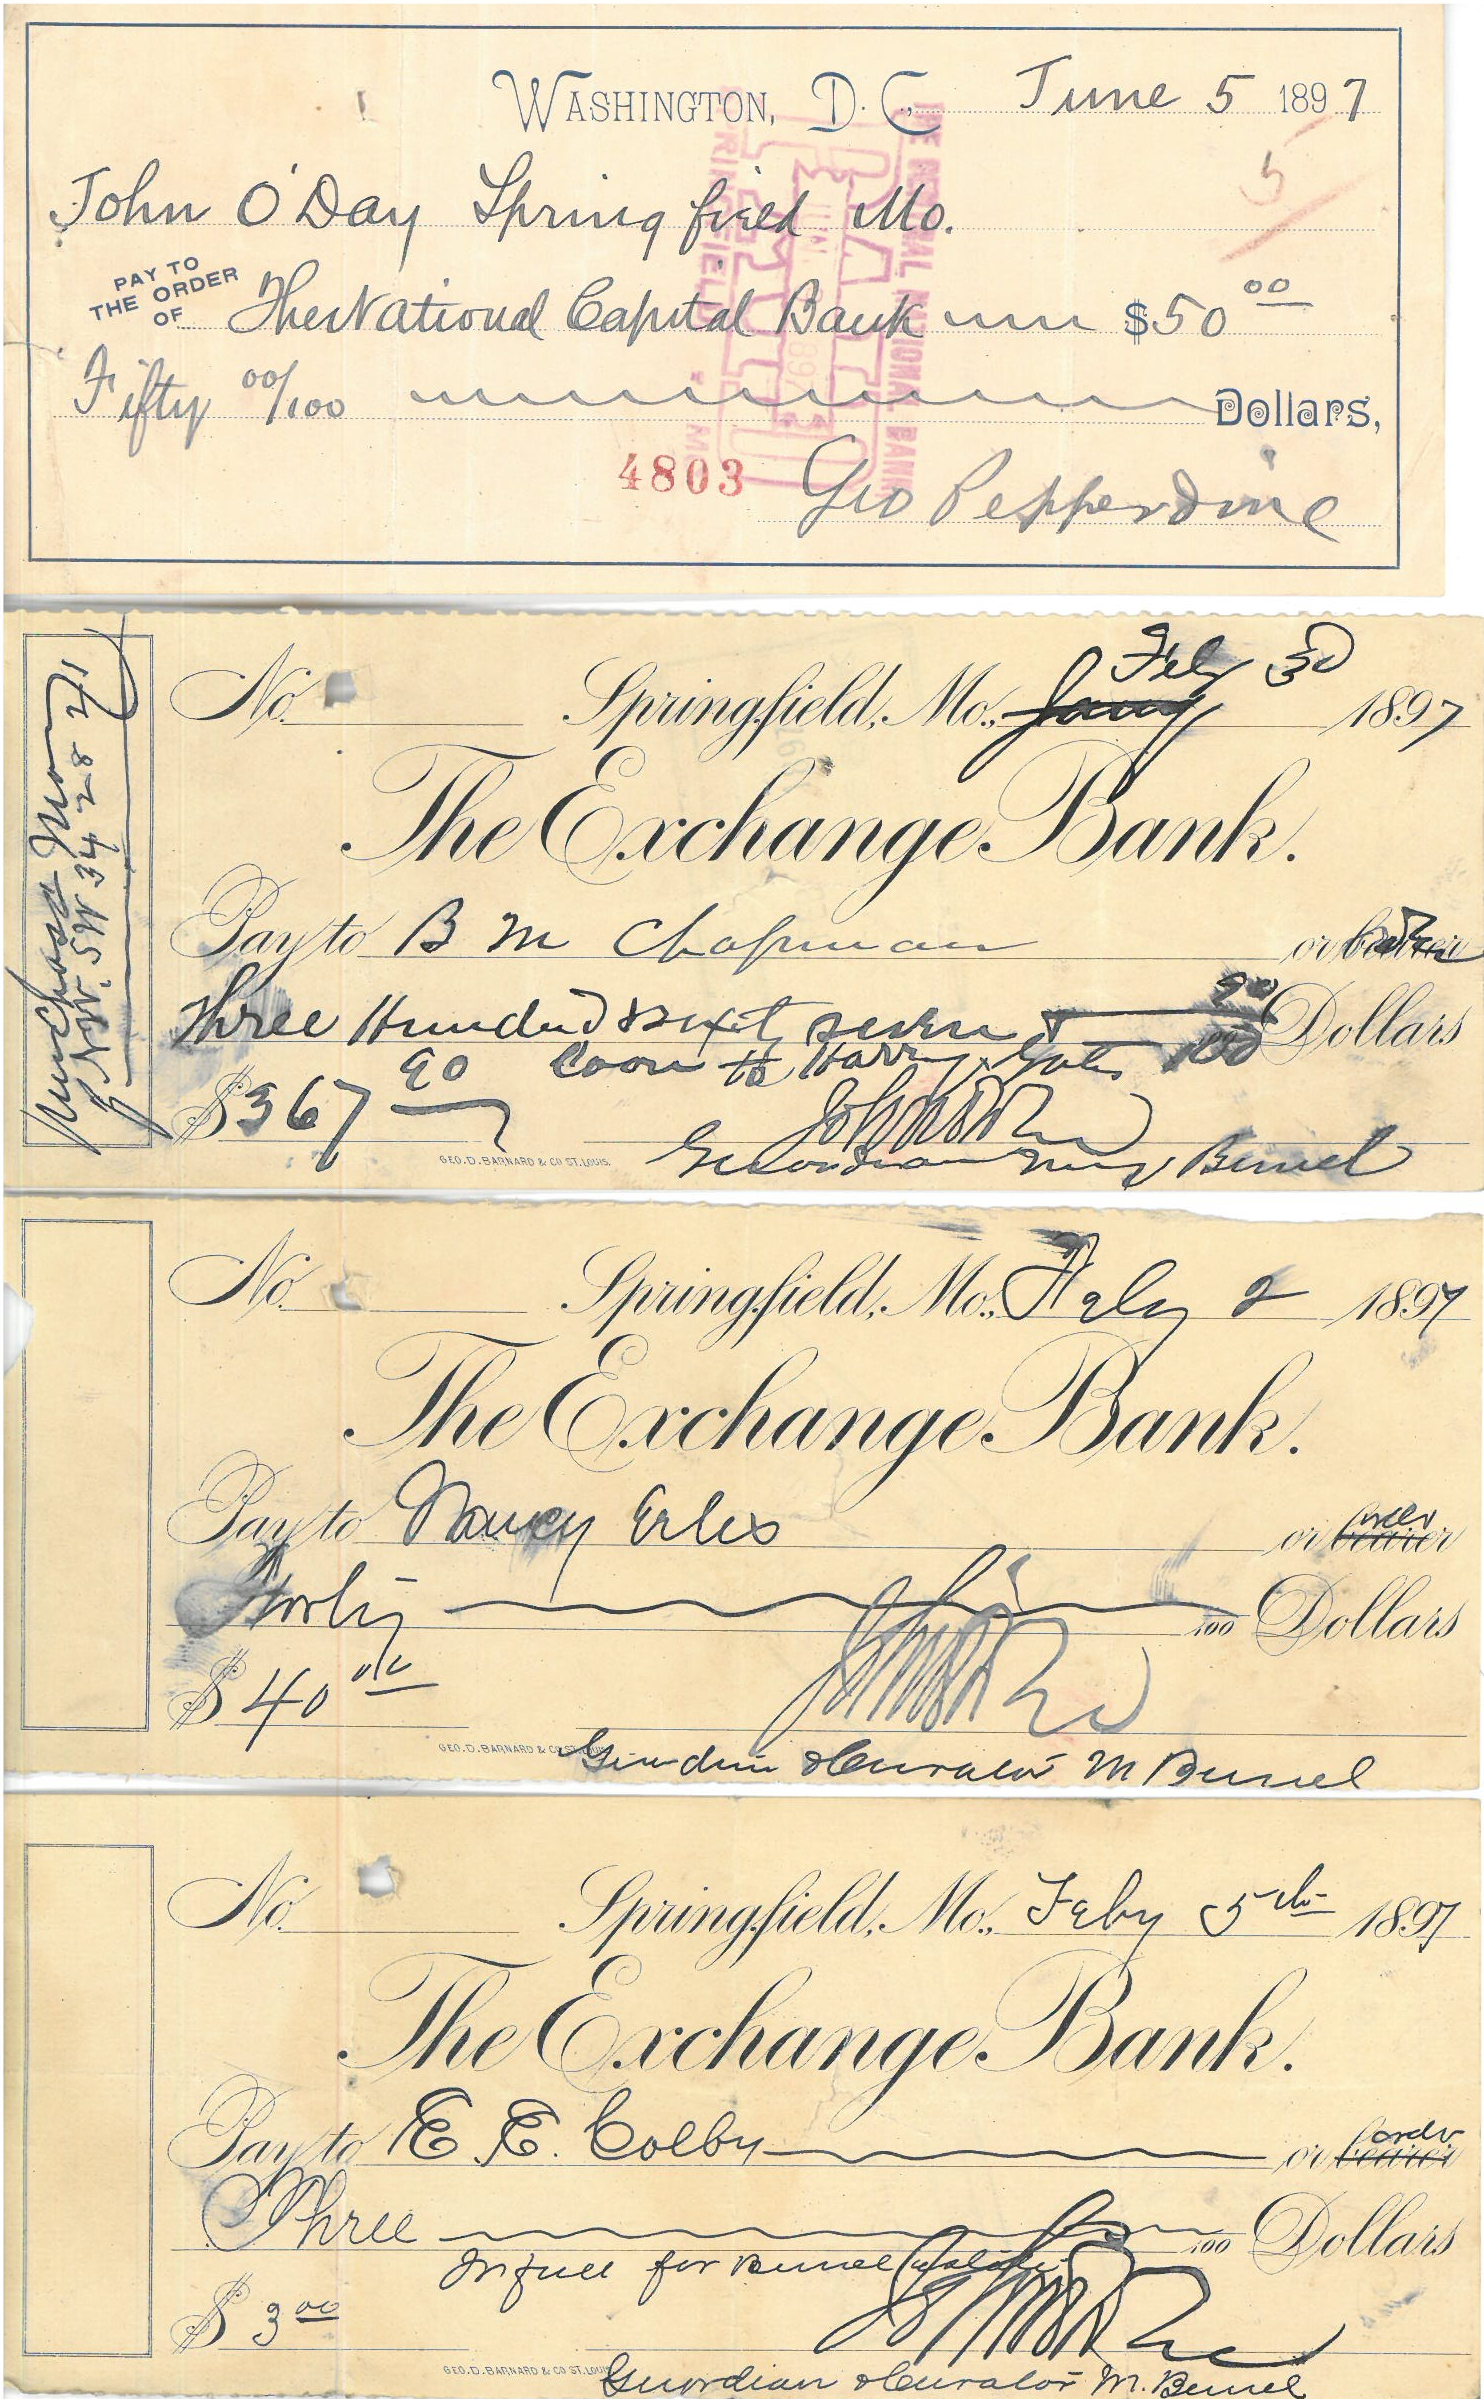 WASHINGTON, D. C., June 5 1897
5
John O'Day Springfield Mo.
PAY TO THE ORDER OF The National Capital Bank $50 00
Fifty 00/100 Dollars,
4803 Geo Pepperdine
THE CENTRAL NATIONAL BANK
PAID
1897
SPRINGFIELD MO
No. Springfield, Mo., Jany Feby 3d 1897
The Exchange Bank.
Pay to B M Chapman or bearer
Three Hundred & sixty seven & 90/100 Dollars
to Harry
$367 90
GEO. D. BARNARD & CO ST. LOUIS.
Guardian Bemel
Purchase Money
NW. SW 34 28 21
No. Springfield, Mo., Feby 2 1897
The Exchange Bank.
Pay to Nancy or bearer order
Forty 100 Dollars
$40
GEO. D. BARNARD & CO ST. LOUIS.
Guardian & Curator M Bemel
No. Springfield, Mo., Feby 5th 1897
The Exchange Bank.
Pay to E. E. Colby or bearer order
Three 100 Dollars
In full for Bemel
$ 3 00
GEO. D. BARNARD & CO ST. LOUIS
Guardian & Curator M. Bemel